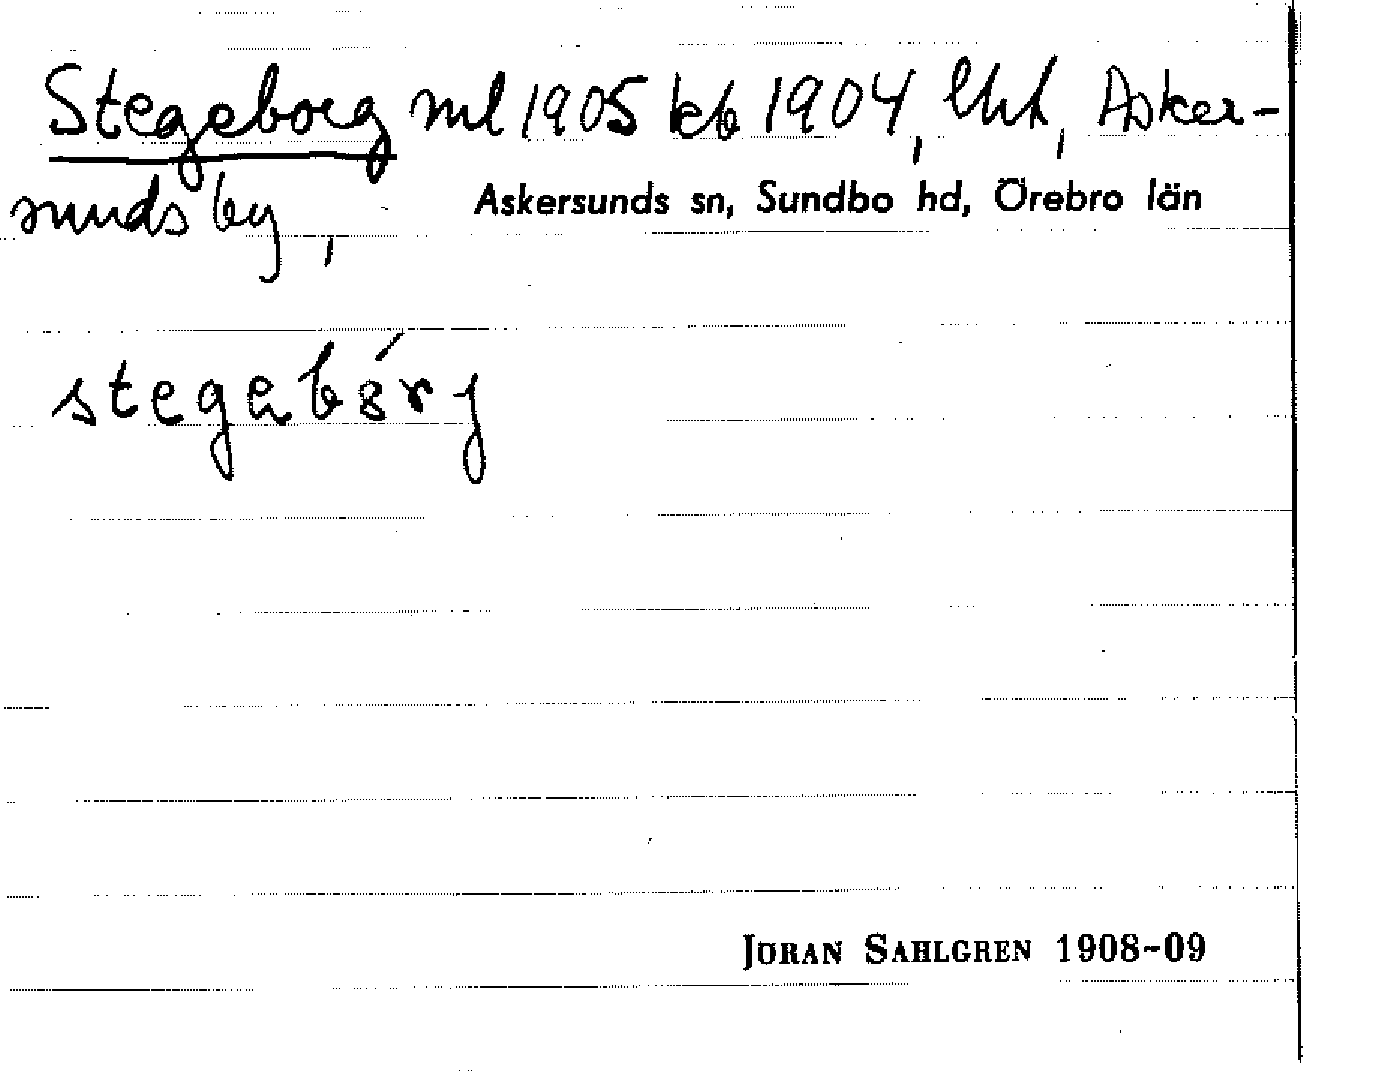 Stegeborg ml 1905 kb 1904, lht, Asker-
sunds by,
Askersunds sn, Sundbo hd, Örebro län
stegebórj
JÖRAN SAHLGREN 1908-09